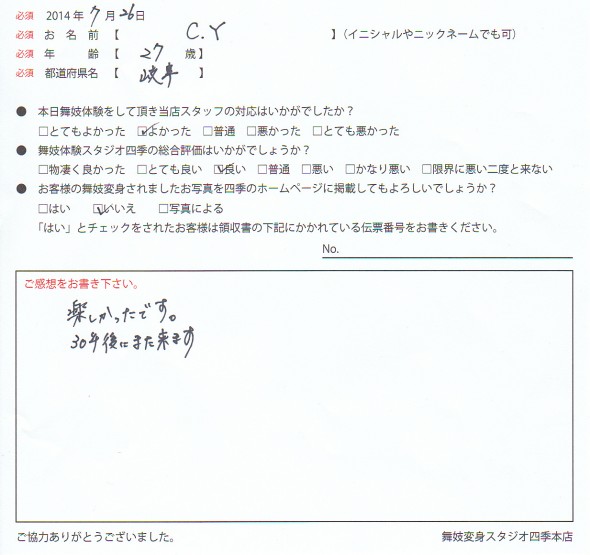 必須 2014年 7月 26日
必須 お名前【 C.Y 】(イニシャルやニックネームでも可)
必須 年齢【 27 歳】
必須 都道府県名【 岐阜 】
● 本日舞妓体験をして頂き当店スタッフの対応はいかがでしたか?
□とてもよかった ☑よかった □普通 □悪かった □とても悪かった
● 舞妓体験スタジオ四季の総合評価はいかがでしょうか?
□物凄く良かった □とても良い ☑良い □普通 □悪い □かなり悪い □限界に悪い二度と来ない
● お客様の舞妓変身されましたお写真を四季のホームページに掲載してもよろしいでしょうか?
□はい ☑いいえ □写真による
「はい」とチェックをされたお客様は領収書の下記にかかれている伝票番号をお書きください。
No.
ご感想をお書き下さい。
楽しかったです。
30年後にまた来ます
ご協力ありがとうございました。 舞妓変身スタジオ四季本店